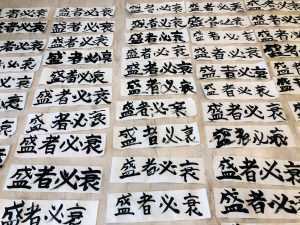 盛者必衰
盛者必衰
盛者必衰
盛者必衰
盛者必衰
盛者必衰
盛者必衰
盛者必衰
盛者必衰
盛者必衰
盛者必衰
盛者必衰
盛者必衰
盛者必衰
盛者必衰
盛者必衰
盛者必衰
盛者必衰
盛者必衰
盛者必衰
盛者必衰
盛者必衰
盛者必衰
盛者必衰
盛者必衰
盛者必衰
盛者必衰
盛者必衰
盛者必衰
盛者必衰
盛者必衰
盛者必衰
盛者必衰
盛者必衰
盛者必衰
盛者必衰